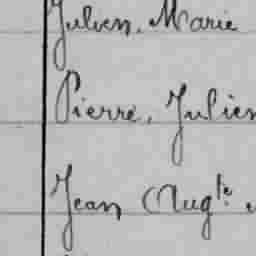 Julien, Marie
Pierre, Julien
Jean Augte